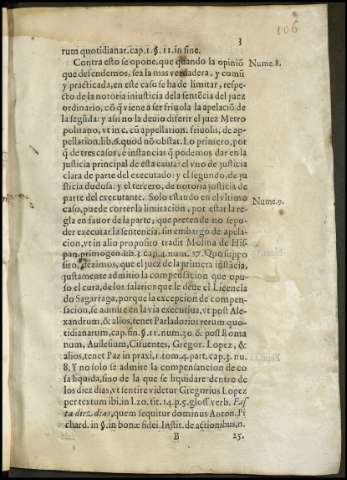 106
3
rum quotidianar. cap. 1. §. 11. in fine.
Contra esto se opone, que quando la opiniõ Nume. 8.
que defendemos, sea la mas verdadera, y comũ
y practicada, en este caso se ha de limitar, respe-
cto de la notoria iniusticia de la sentẽcia del juez
ordinario, cõ q̃ viene a ser friuola la apelaciõ de
la segũda: y asi no la deuio diferir el juez Metro
politano, vt in c. cũ appellation. friuolis, de ap-
pellation. lib. 6. quod nõ obstat. Lo primero, por
q̃ de tres casos, è instancias q̃ podemos dar en la
justicia principal de esta causa: el vno de justicia
clara de parte del executado: y el segundo, de ju
sticia dudosa: y el tercero, de notoria justicia de
parte del executante. Solo estando en el vltimo
caso, puede correr la limitacion, por estar la re- Nume. 9.
gla en fauor de la parte, que pretende no se po-
der executar la sentencia, sin embargo de apela-
cion, vt in alio proposito tradit Molina de His-
pan. primogen. lib. 3. cap. 4. num. 37. Quo suppo
sito, dezimos, que el juez de la primera instãcia,
justamente admitio la compensacion que opu-
so el cura, de los salarios que le deue el Licencia
do Sagarraga, porque la excepcion de compen-
sacion, se admite en la via executiua, vt post Ale-
xandrum, & alios, tenet Parladorius rerum quo-
tidianarum, cap. fin. §. 11. num. 30. & post Roma
num, Auilesium, Cifuentes, Gregor. Lopez, &
alios, tenet Paz in praxi, 1. tom. 4. part. cap. 3. nu.
8. Y no solo se admite la compensancion de co
sa liquida, sino de la que se liquidare dentro de
los diez dias, vt sentire videtur Gregorius Lopez
per textum ibi, in l. 20. tit. 14. p. 5. gloss. verb. Fas-
ta diez dias, quem sequitur dominus Anton. Pi
chard. in §. in bonæ fidei. Instit. de actionibus, n.
B 25.